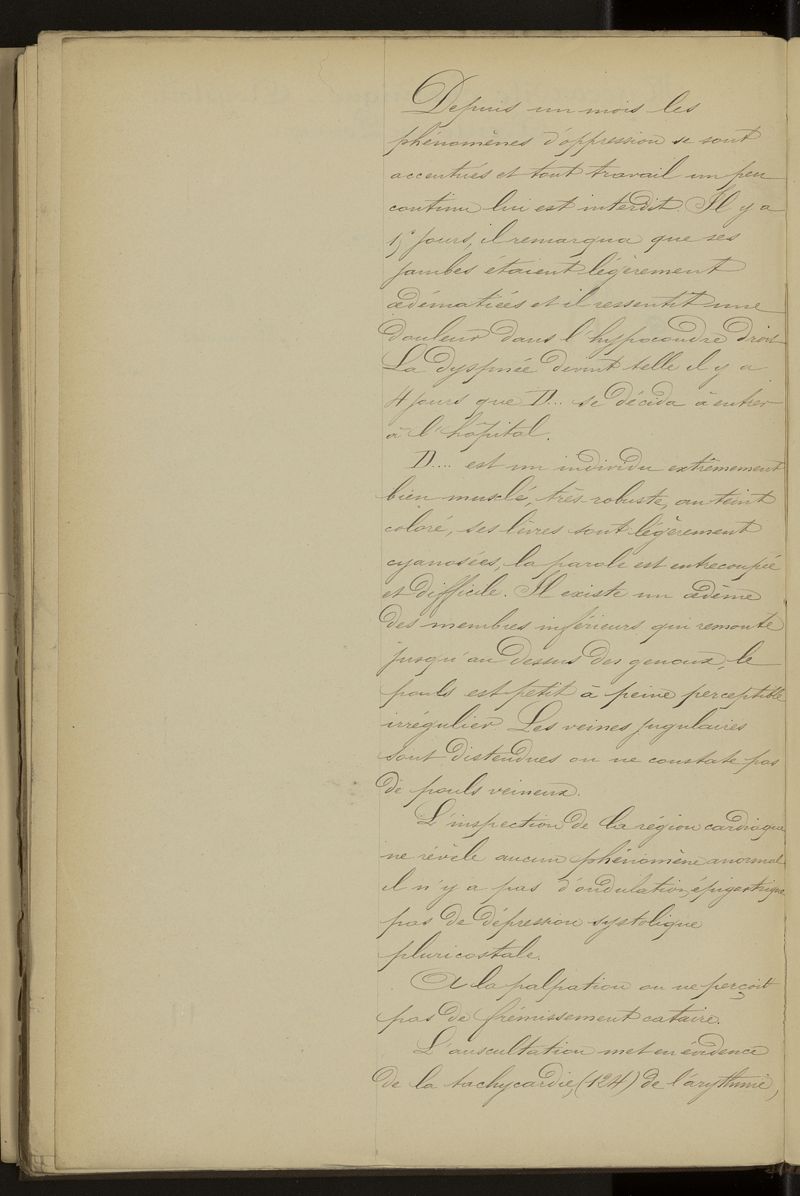 Depuis un mois les
phénomènes d'oppression se sont
accentués et tout travail un peu
continu lui est interdit. Il y a
15 jours, il remarqua que ses
jambes étaient légèrement
œdématiées et il ressentit une
douleur dans l'hypocondre droit
La dyspnée devint telle il y a
4 jours que D... se décida à entrer
à l'hôpital.
D.... est un individu extrêmement
bien musclé, très robuste, au teint
coloré, ses lèvres sont légèrement
cyanosées, la parole est entrecoupée
et difficile. Il existe un œdème
des membres inférieurs qui remonte
jusqu'au dessus des genoux, le
pouls est petit à peine perceptible
irrégulier. Les veines jugulaires
sont distendues on ne constate pas
de pouls veineux.
L'inspection de la région cardiaque
ne révèle aucun phénomène anormal
il n'y a pas d'ondulation épigastrique
pas de dépression systolique
pluricostale.
A la palpation on ne perçoit
pas de frémissement cataire.
L'auscultation met en évidence
de la tachycardie, (124) de l'arythmie,